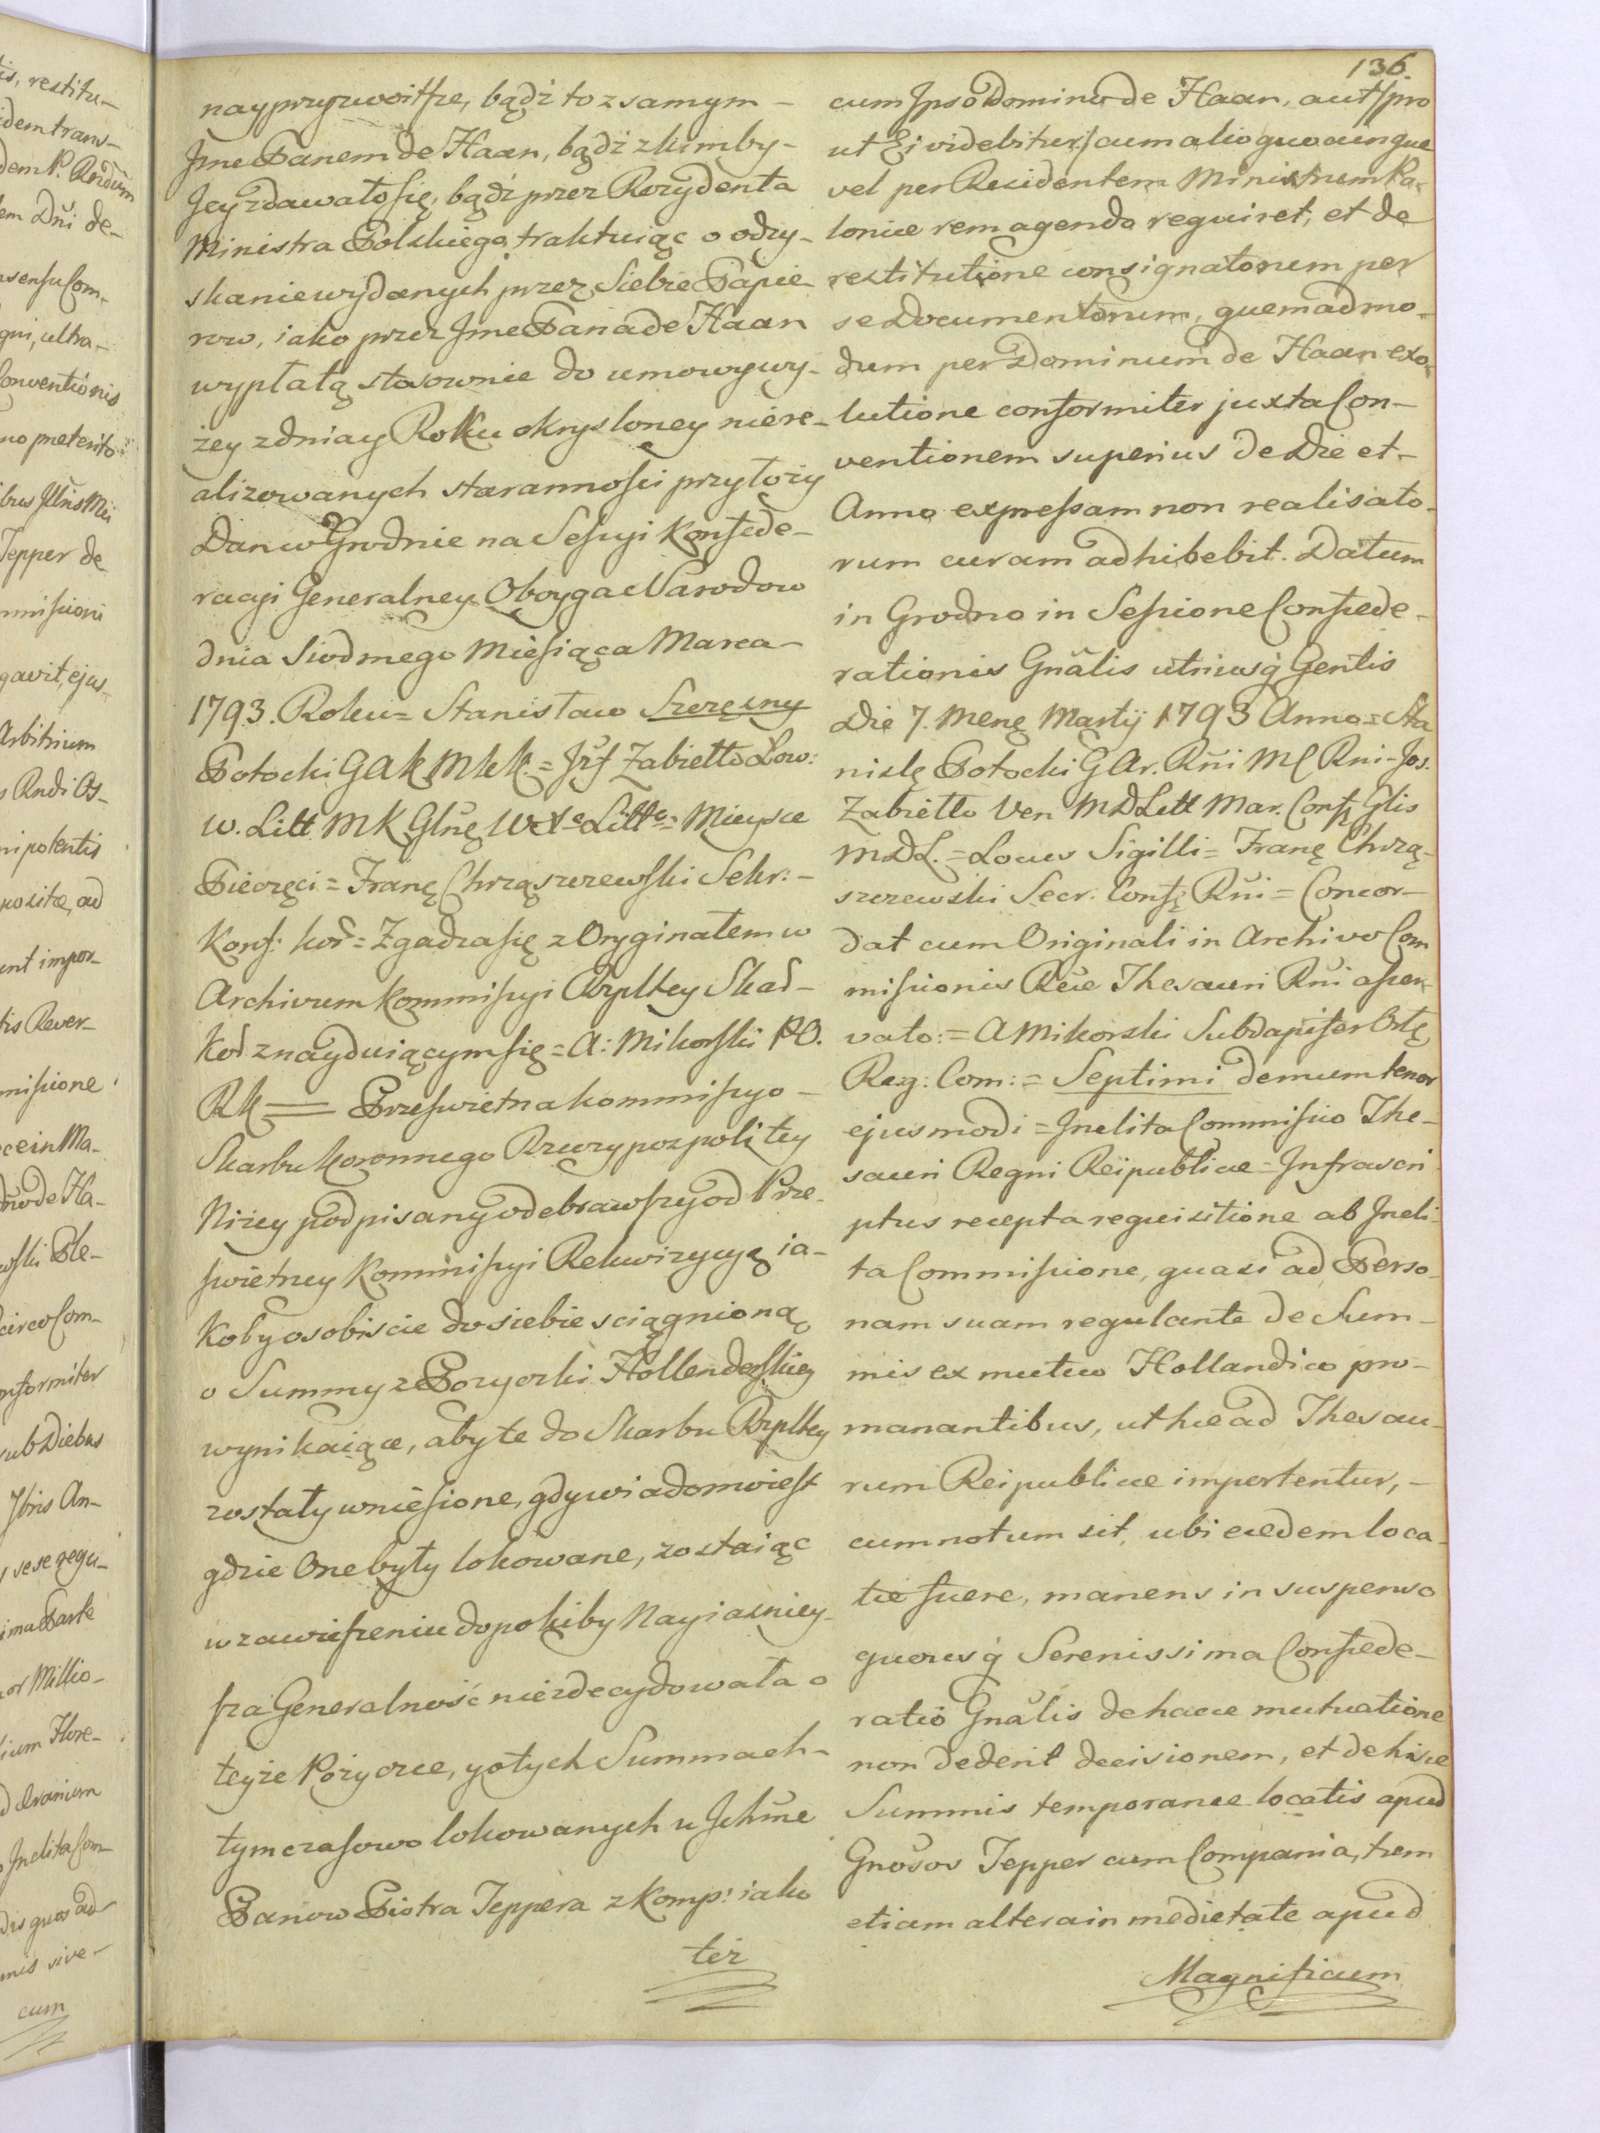 136.
nayprzyzwoitsze, bądź to z samym –
Jme Panem de Haan, bądź z kimby –
Jey zdawało się, bądź przez Rezydenta
Ministra Polskiego traktuiąc o odzy-
skanie wydanych przez Siebie Papie-
row, iako przez Jme Pana de Haan
wypłatą stosownie do umowy wy-
żey z dnia y Roku okrysloney niere-
alizowanych starannosci przyłoży
Dan w Grodnie na Sessyi Konfede-
racyi Generalney Oboyga Narodow
dnia Siodmego Miesiąca Marca –
1793. Roku = Stanisław Szczęsny
Potocki GAK MKK. = Jzf Zabiełło Łow:
W. Litt MK Glnę WXa Litto = Mieysce
Pieczęci = Franę Chrząszczewski Sekr: –
Konf: kor = Zgadza się z Oryginałem w
Archivum Kommissyi Rzpltey Skar-
Kor znayduiącym się = A: Mikorski PO.
RK = Przeswietna Kommissyo –
Skarbu Koronnego Rzeczypospolitey
Niżey podpisany odebrawszy od Prze-
swietney Kommissyi Rekwizycyą ia-
koby osobiscie do siebie sciągnioną
o Summy z Pozyczki Hollenderskiey
wynikaiące, aby te do Skarbu Rzpltey
zostały wniesione, gdy wiadomo iest
gdzie One były lokowane, zostaiąc
w zawieszeniu dopokiby Nayiasniey-
sza Generalność niezdecydowała o
teyże Pożyczce, y o tych Summach –
tymczasowo lokowanych u Jchme
Panow Piotra Teppera z Komp: iako
też
cum Ipso Domino de Haan, aut /pro
ut Ei videbitur/ cum alio quocunque
vel per Residentem Ministrum Po-
loniae rem agendo requiret, et de
restitutione consignatorum per
se Documentorum, quemadmo-
dum per Dominum de Haan exo-
lutione conformiter juxta Con-
ventionem superius de Die et –
Anno expressam non realisato-
rum curam adhibebit. Datum
in Grodno in Sessione Confoede-
rationis Gnalis utriusq̇ Gentis
Die 7. Menę Martij 1793 Anno = Sta
nislę Potocki G Ar. Rñi MC Rni – Jos.
Zabiełło Ven MDLitt Mar. Confę Glis
MDL. = Locus Sigilli = Franę Chrzą-
szczewski Secr. Confę Rñi = Concor-
dat cum Originali in Archivo Com
missionis Reae Thesauri Rñi asser-
vato: = A Mikorski Subdapifer Ostę
Reg: Com: = Septimi demum tenor
ejusmodi = Inclita Commissio The-
sauri Regni Reipublicae = Infrascri
ptus recepta requisitione ab Incli-
ta Commissione, quasi ad Perso-
nam suam regulante de Sum-
mis ex mutuo Hollandico pro-
manantibus, ut hae ad Thesau-
rum Reipublicae importentur, –
cum notum sit, ubi eaedem loca-
tae fuere, manens in suspenso
quousq̇ Serenissima Confoede-
ratio Gnalis de hacce mutuatione
non dederit decisionem, et de hisce
Summis temporanee locatis apud
Gnosos Tepper cum Compania, tum
etiam altera in medietate apud
Magnificum